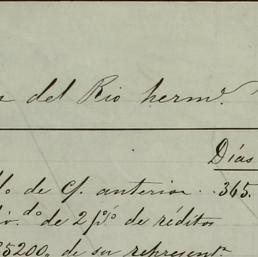 del Rio herm.ˢ
Días
de c/. anterior .. 365.
do de 2 p% de réditos
5200, de su represent.ᵃ